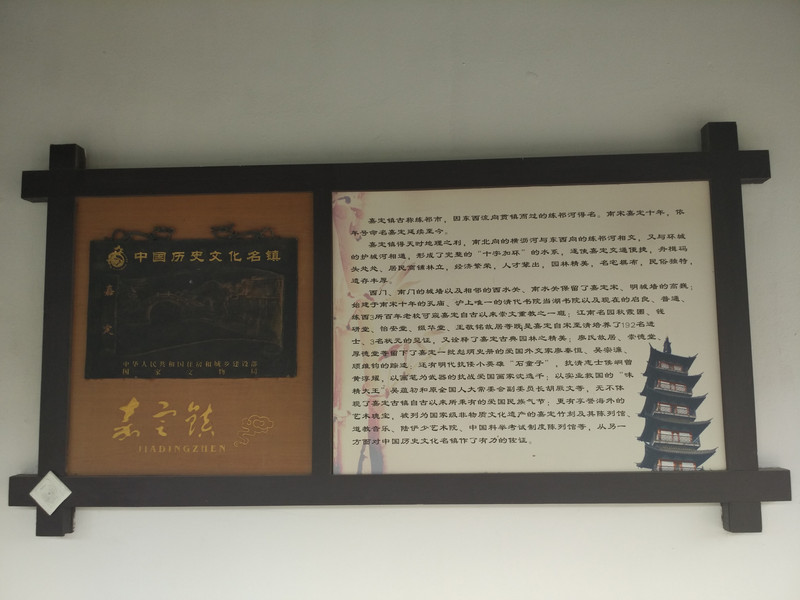 中国历史文化名镇
嘉定
中华人民共和国住房和城乡建设部
国家文物局
嘉定镇
JIADINGZHEN
嘉定镇古称练祁市，因东西流向贯镇而过的练祁河得名。南宋嘉定十年，依
年号命名嘉定延续至今。
嘉定镇得天时地理之利，南北向的横沥河与东西向的练祁河相交，又与环城
的护城河相通，形成了完整的“十字加环”的水系，遂使嘉定交通便捷，舟楫码
头处处，居民商铺林立，经济繁荣，人才辈出，园林精美，名宅棋布，民俗独特，
遗存丰厚。
西门、南门的城墙以及相邻的西水关、南水关保留了嘉定宋、明城墙的高巍；
始建于南宋十年的孔庙、沪上唯一的清代书院当湖书院以及现在的启良、普通、
练西3所百年老校可窥嘉定自古以来崇文重教之一斑；江南名园秋霞圃、钱
研堂、怡安堂、缀华堂、王敬铭故居等既是嘉定自宋至清培养了192名进
士、3名状元的见证，又诠释了嘉定古典园林之精美；廖氏故居、崇德堂、
厚德堂等留下了嘉定一批彪炳史册的爱国外交家廖泰恒、吴宗濂、
顾维钧的踪迹，还有明代抗倭小英雄“石童子”，抗清志士侯峒曾
黄淳耀，以画笔为武器的抗战爱国画家沈逸千；以实业救国的“味
精大王”吴蕴初和原全国人大常委会副委员长胡厥文等，无不体
现了嘉定古镇自古以来所具有的爱国民族气节；更有享誉海外的
艺术瑰宝，被列为国家级非物质文化遗产的嘉定竹刻及其陈列馆、
道教音乐、陆俨少艺术院、中国科举考试制度陈列馆等，从另一
方面对中国历史文化名镇作了有力的佐证。